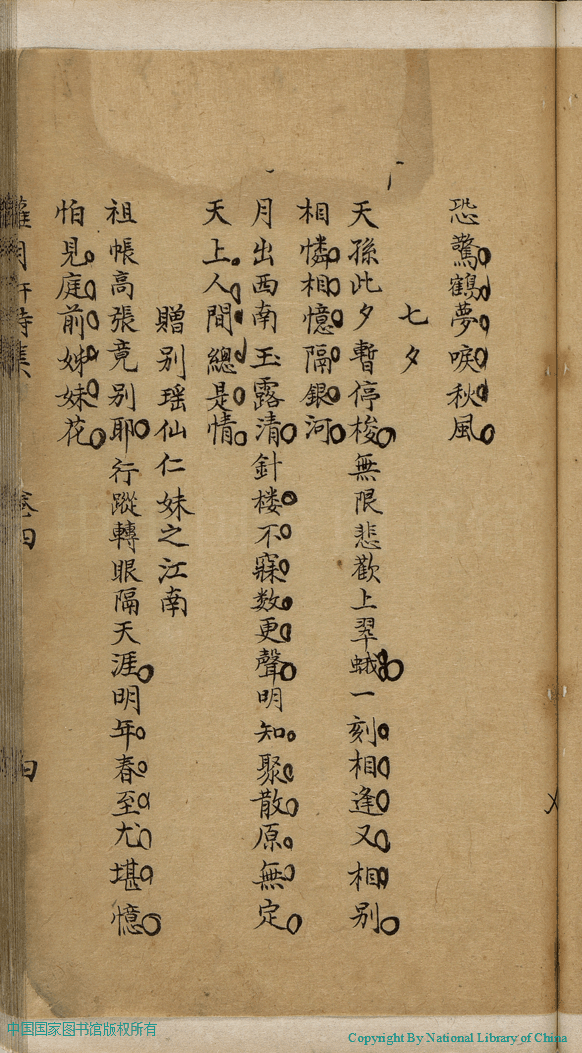 恐驚鶴夢唳秋風
七夕
天孫此夕暫停梭無限悲歡上翠蛾一刻相逢又相別
相憐相憶隔銀河
月出西南玉露清針楼不寐数更聲明知聚散原無定
天上人間總是情
贈別瑶仙仁妹之江南
祖帳高張竟別耶行蹤轉眼隔天涯明年春至尤堪憶
怕見庭前姊妹花
月軒詩集 卷四 四
中国国家图书馆版权所有
Copyright By National Library of China